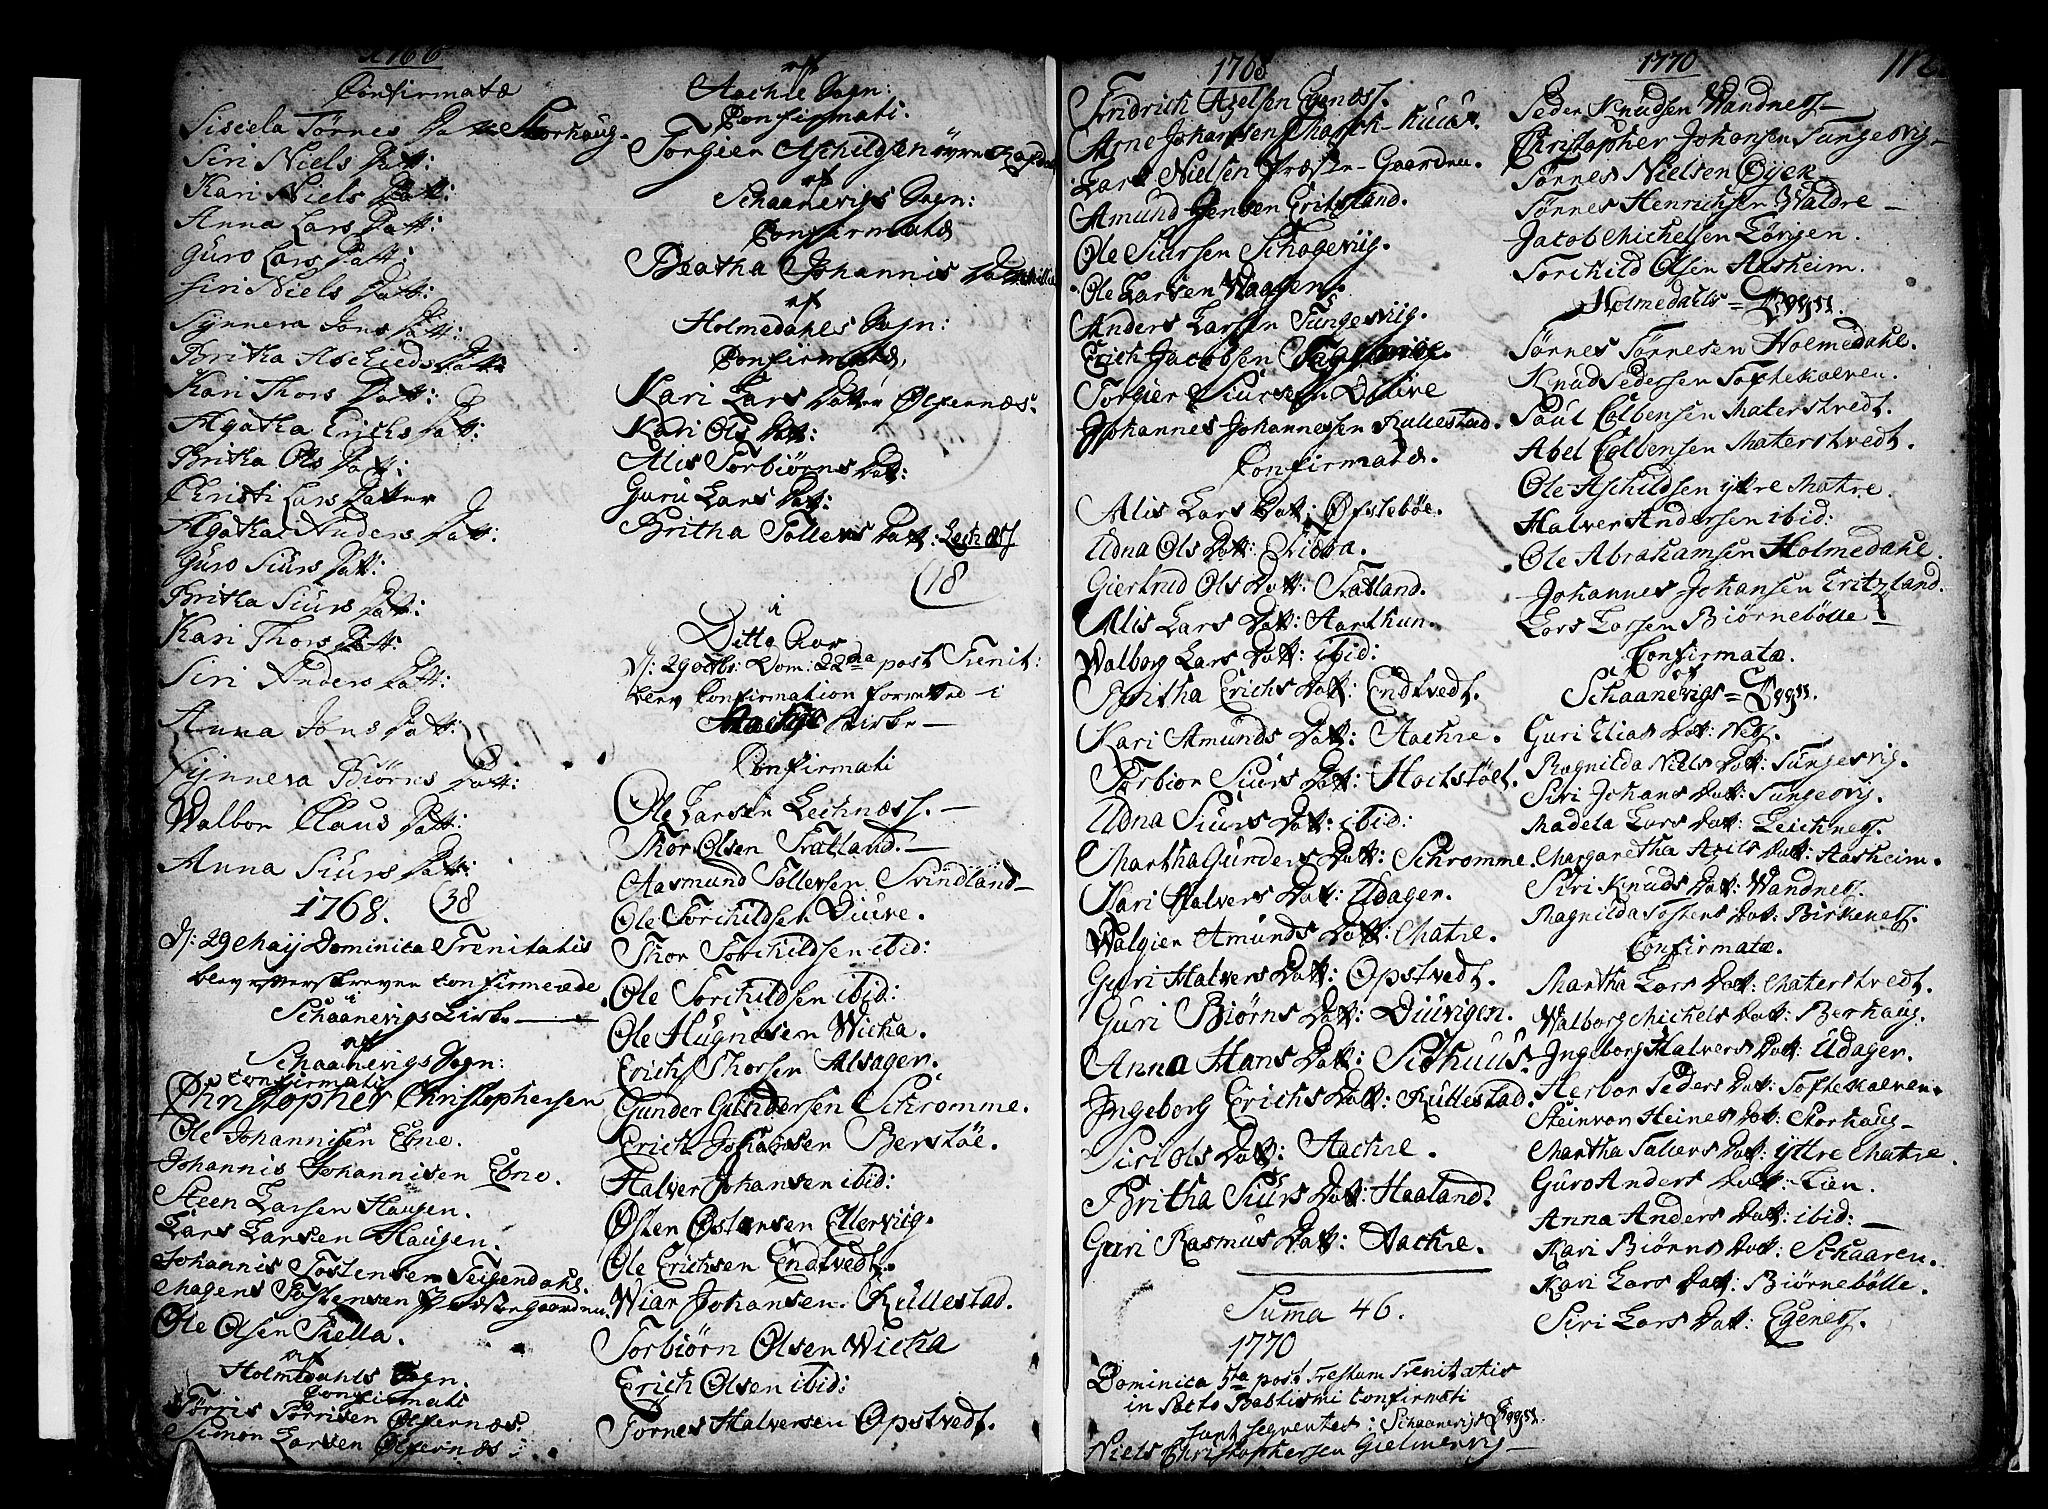 1766
Confirmatæ
Siscela Tørnes Datt Storhaug.
Siri Niels Datt:
Kari Niels Datt:
Anna Lars Datt:
Guro Lars Datt:
Siri Niels Datt:
Synneva Jons Datt:
Britha Aschieds Datt
Kari Thors Datt:
Agatha Erichs Datt:
Britha Ols Datt:
Christi Lars Datter
Agatha Anders Datt:
Guro Siurs Datt:
Britha Siurs Datt:
Kari Thors Datt:
Siri Anders Datt:
Anna Jons Datt:
Synneva Biørns Datt:
Walbor Claus Datt:
Anna Siurs Datt:
38
1768.
D: 29 Maij Dominica Trenitatis
blev efterskreven confirmerede
i
Schaanevigs Kirke
af
Schaanevigs Sogn:
Confirmati
Christopher Christophersen
Ole Johannisen Ebne.
Johannis Johannisen Ebne.
Steen Larsen Haugen.
Lars Larsen Haugen.
Johannis Tostensen Teigendahl.
Magens Tostensen Præstergaarden.
Ole Olsen Tiella.
af
Holmedahls Sogn.
Confirmati
Tørris Tørrisen Ølfernæs.
Simon Larsen Ølfernæs
af
Aachre Sogn:
Confirmati.
Torgier Aschildsen øvre
af
Schaanevigs Sogn:
Confirmatæ
Beatha Johannis Datt
af
Holmedahls Sogn:
Confirmatæ,
Kari Lars Datter Ølfernæs.
Kari Ols Datt:
Alis Torbiørns Dat:
Guru Lars Dat:
Britha Tollevs Datt: Leichness
18
i
Ditto Aar
D: 29 octbr: Dom: 22da post Trenit:
blev Confirmation forrettet i
Aachre Kirke
Confirmati
Ole Larsen Lechnæss.
Thor Olsen Tratland.
Aasmund Tollevsen Svindland
Ole Torchildsen Diuve.
Thor Torchildsen ibid:
Ole Torchildsen ibid:
Ole Hugnesen Wicha.
Erich Thorsen Alsager.
Gunder Gundersen Schromme.
Erich Johansen Berstøe.
Halver Johansen ibid:
Østen Østensen Ellerviig.
Ole Erichsen Endtvedt.
Wiar Johansen Rullestad.
Torbiørn Olsen Wicha
Erich Olsen ibid:
Tørnes Halversen Opstvedt.
1768
Fridrich Axelsen Egenæss.
Arne Johansen
Lars Nielsen Præste-Gaarden.
Amund Jensen Eritzland.
Ole Siursen Schogeviig.
Ole Larsen Waagen.
Anders Larsen Tungesviig.
Erich Jacobsen
Torgier Siursen Diuve
Johannes Johannessen Rullestad.
Confirmatæ.
Alis Lars Dat: Øfstebøe.
Udna Ols Datt:
Giertrud Ols Datt: Tatland.
Alis Lars Datt: Aarthun.
Walborg Lars Datt: ibid:
Britha Erichs Datt: Endtvedt.
Kari Amunds Datt: Aachre.
Torbior Siurs Datt: Hochstøel.
Udna Siurs Datt: ibid:
Martha Gunders Datt: Schromme.
Kari Halvers Datt: Udager.
Walgier Amunds Datt: Matre.
Guri Halvers Datt: Opstvedt.
Guri Biørns Datt: Diuvigen.
Anna Hans Datt: Sethuus.
Ingeborg Erichs Datt: Rullestad.
Siri Ols Datt: Aachre.
Britha Siurs Datt: Haaland.
Guri Rasmus Datt: Aachre.
Suma 46.
1770
Dominica 5ta post Festum Trenitatis
in Pacto Babtismi confirmati
sunt seqventes: Schaanevigs Sogn.
Niels Christophersen Gielmervig
1770
Peder Knudsen Wandness
Christopher Johansen Tungesvig
Tørnes Nielsen Øyer
Tørnes Henrichsen Waldre
Jacob Michelsen Tøngen.
Torchild Olsen Aasheim.
Holmedahls Sogn.
Tørnes Tørnesen Holmedahl.
Knud Pedersen Toftekalven.
Paul Colbensen Materstvedt.
Abel Colbensen Materstvedt.
Ole Aschildsen yttre Matre.
Halver Andersen ibid:
Ole Abrahamsen Holmedahl.
Johannes Johansen Eritzland.
Lars Larsen Biørnebølle
Confirmatæ.
af
Schaanevigs Sogn.
Guri Elias Dat: Ness.
Ragnilda Niels Dat: Tungesvig.
Siri Johans Dat: Tungesvig.
Madela Lars Dat: Leichness.
Margaretha Axels Dat: Aasheim.
Siri Knuds Dat: Wandness.
Ragnilda Tostens Dat: Birkeness.
Confirmatæ.
Martha Lars Dat: Materstvedt.
Walborg Michels Dat: Berhaug.
Ingeborg Halvers Dat: Udager.
Herbor Peders Dat: Toftekalven.
Steinvor Heines Dat: Storhaug
Martha Salvers Dat: yttre Matre.
Guro Anders Datt: Lien.
Anna Anders Dat: ibid:
Kari Biørns Datt: Schaaren.
Kari Lars Datt: Biørnebølle.
Siri Lars Datt: Egeness.